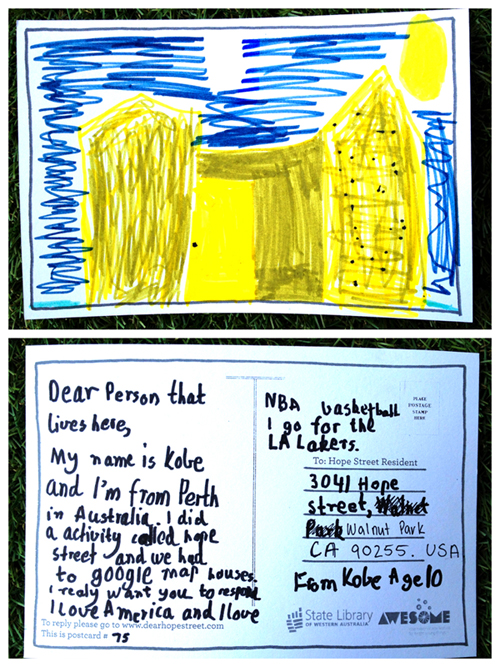 Dear Person that
lives here,
My name is Kobe
and I'm from Perth
in Australia. I did
a activity called hope
street and we had
to google map houses.
I realy want you to respond
I love America and I love
To reply please go to www.dearhopestreet.com
This is postcard # 75
NBA basketball
I go for the
LA Lakers.
PLACE
POSTAGE
STAMP
HERE
To: Hope Street Resident
3041 Hope
street, Walnut
Park Walnut Park
CA 90255. USA
From Kobe Age 10
State Library
OF WESTERN AUSTRALIA
AWESOME